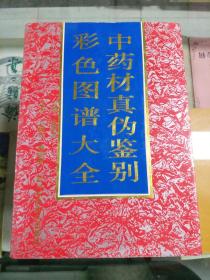 中药材真伪鉴别
彩色图谱大全